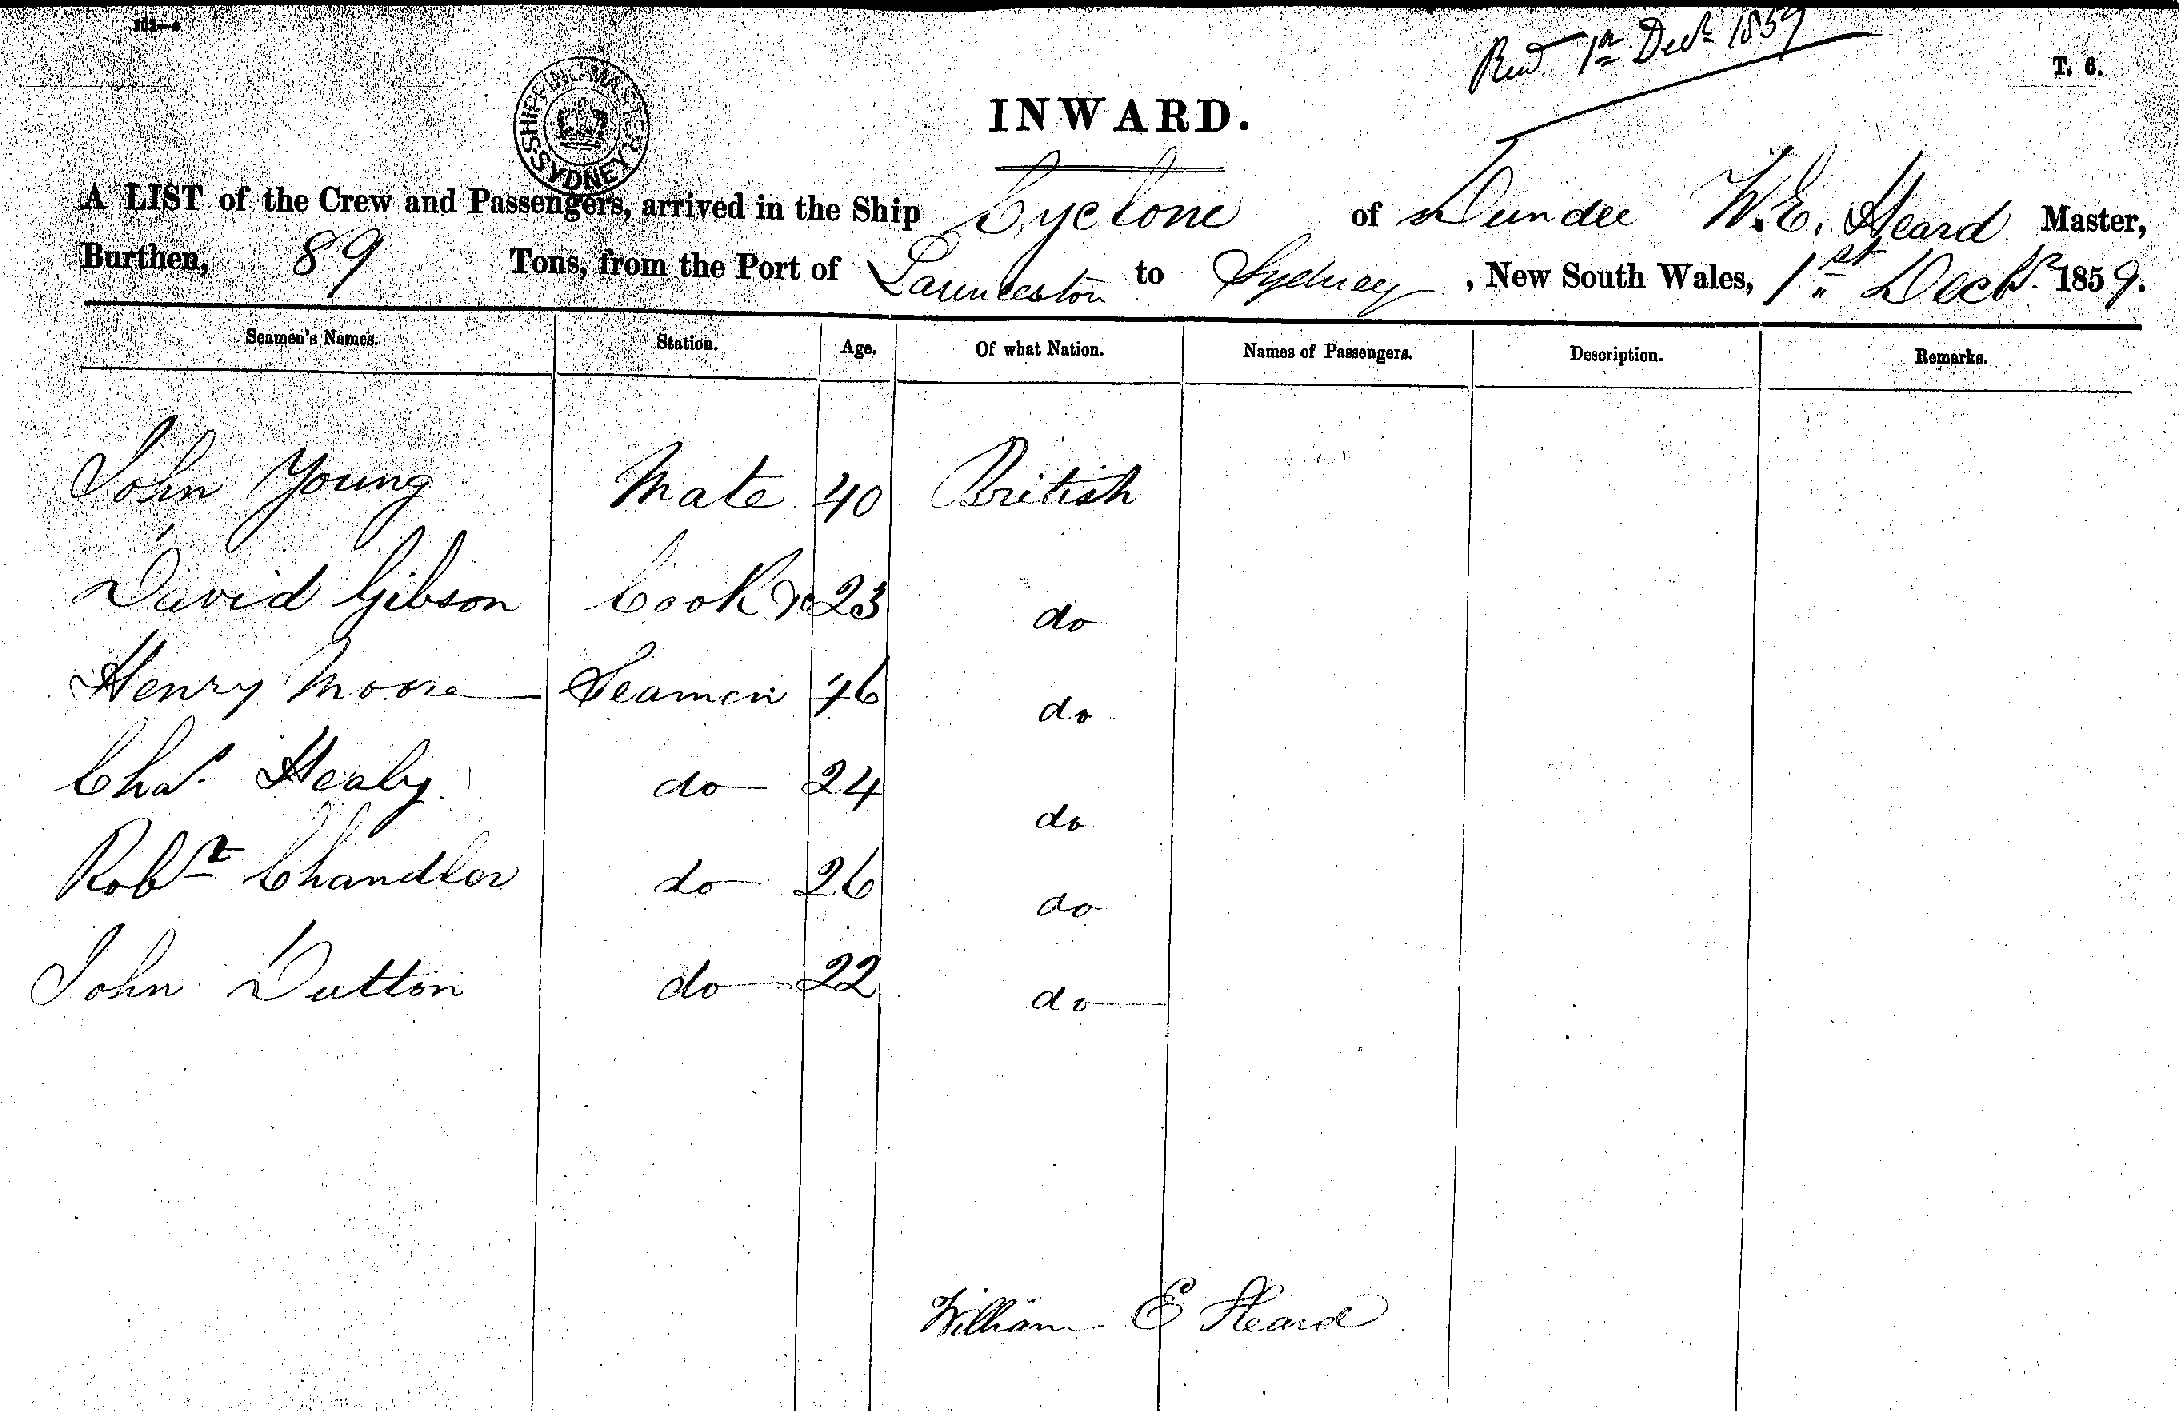 Recd 1st Decr 1859
T. 6.
SHIPPING MASTER
SYDNEY
INWARD.
A LIST of the Crew and Passengers, arrived in the Ship Cyclone of Dundee W.E. Heard Master,
Burthen, 89 Tons, from the Port of Launceston to Sydney, New South Wales, 1st Decbr. 1859.
Seamen's Names. Station. Age. Of what Nation. Names of Passengers. Description. Remarks.
John Young Mate 40 British
David Gibson Cook 23 do
Henry Moore Seamen 46 do
Chas. Healy do 24 do
Robt Chandler do 26 do
John Dutton do 22 do
William E Heard